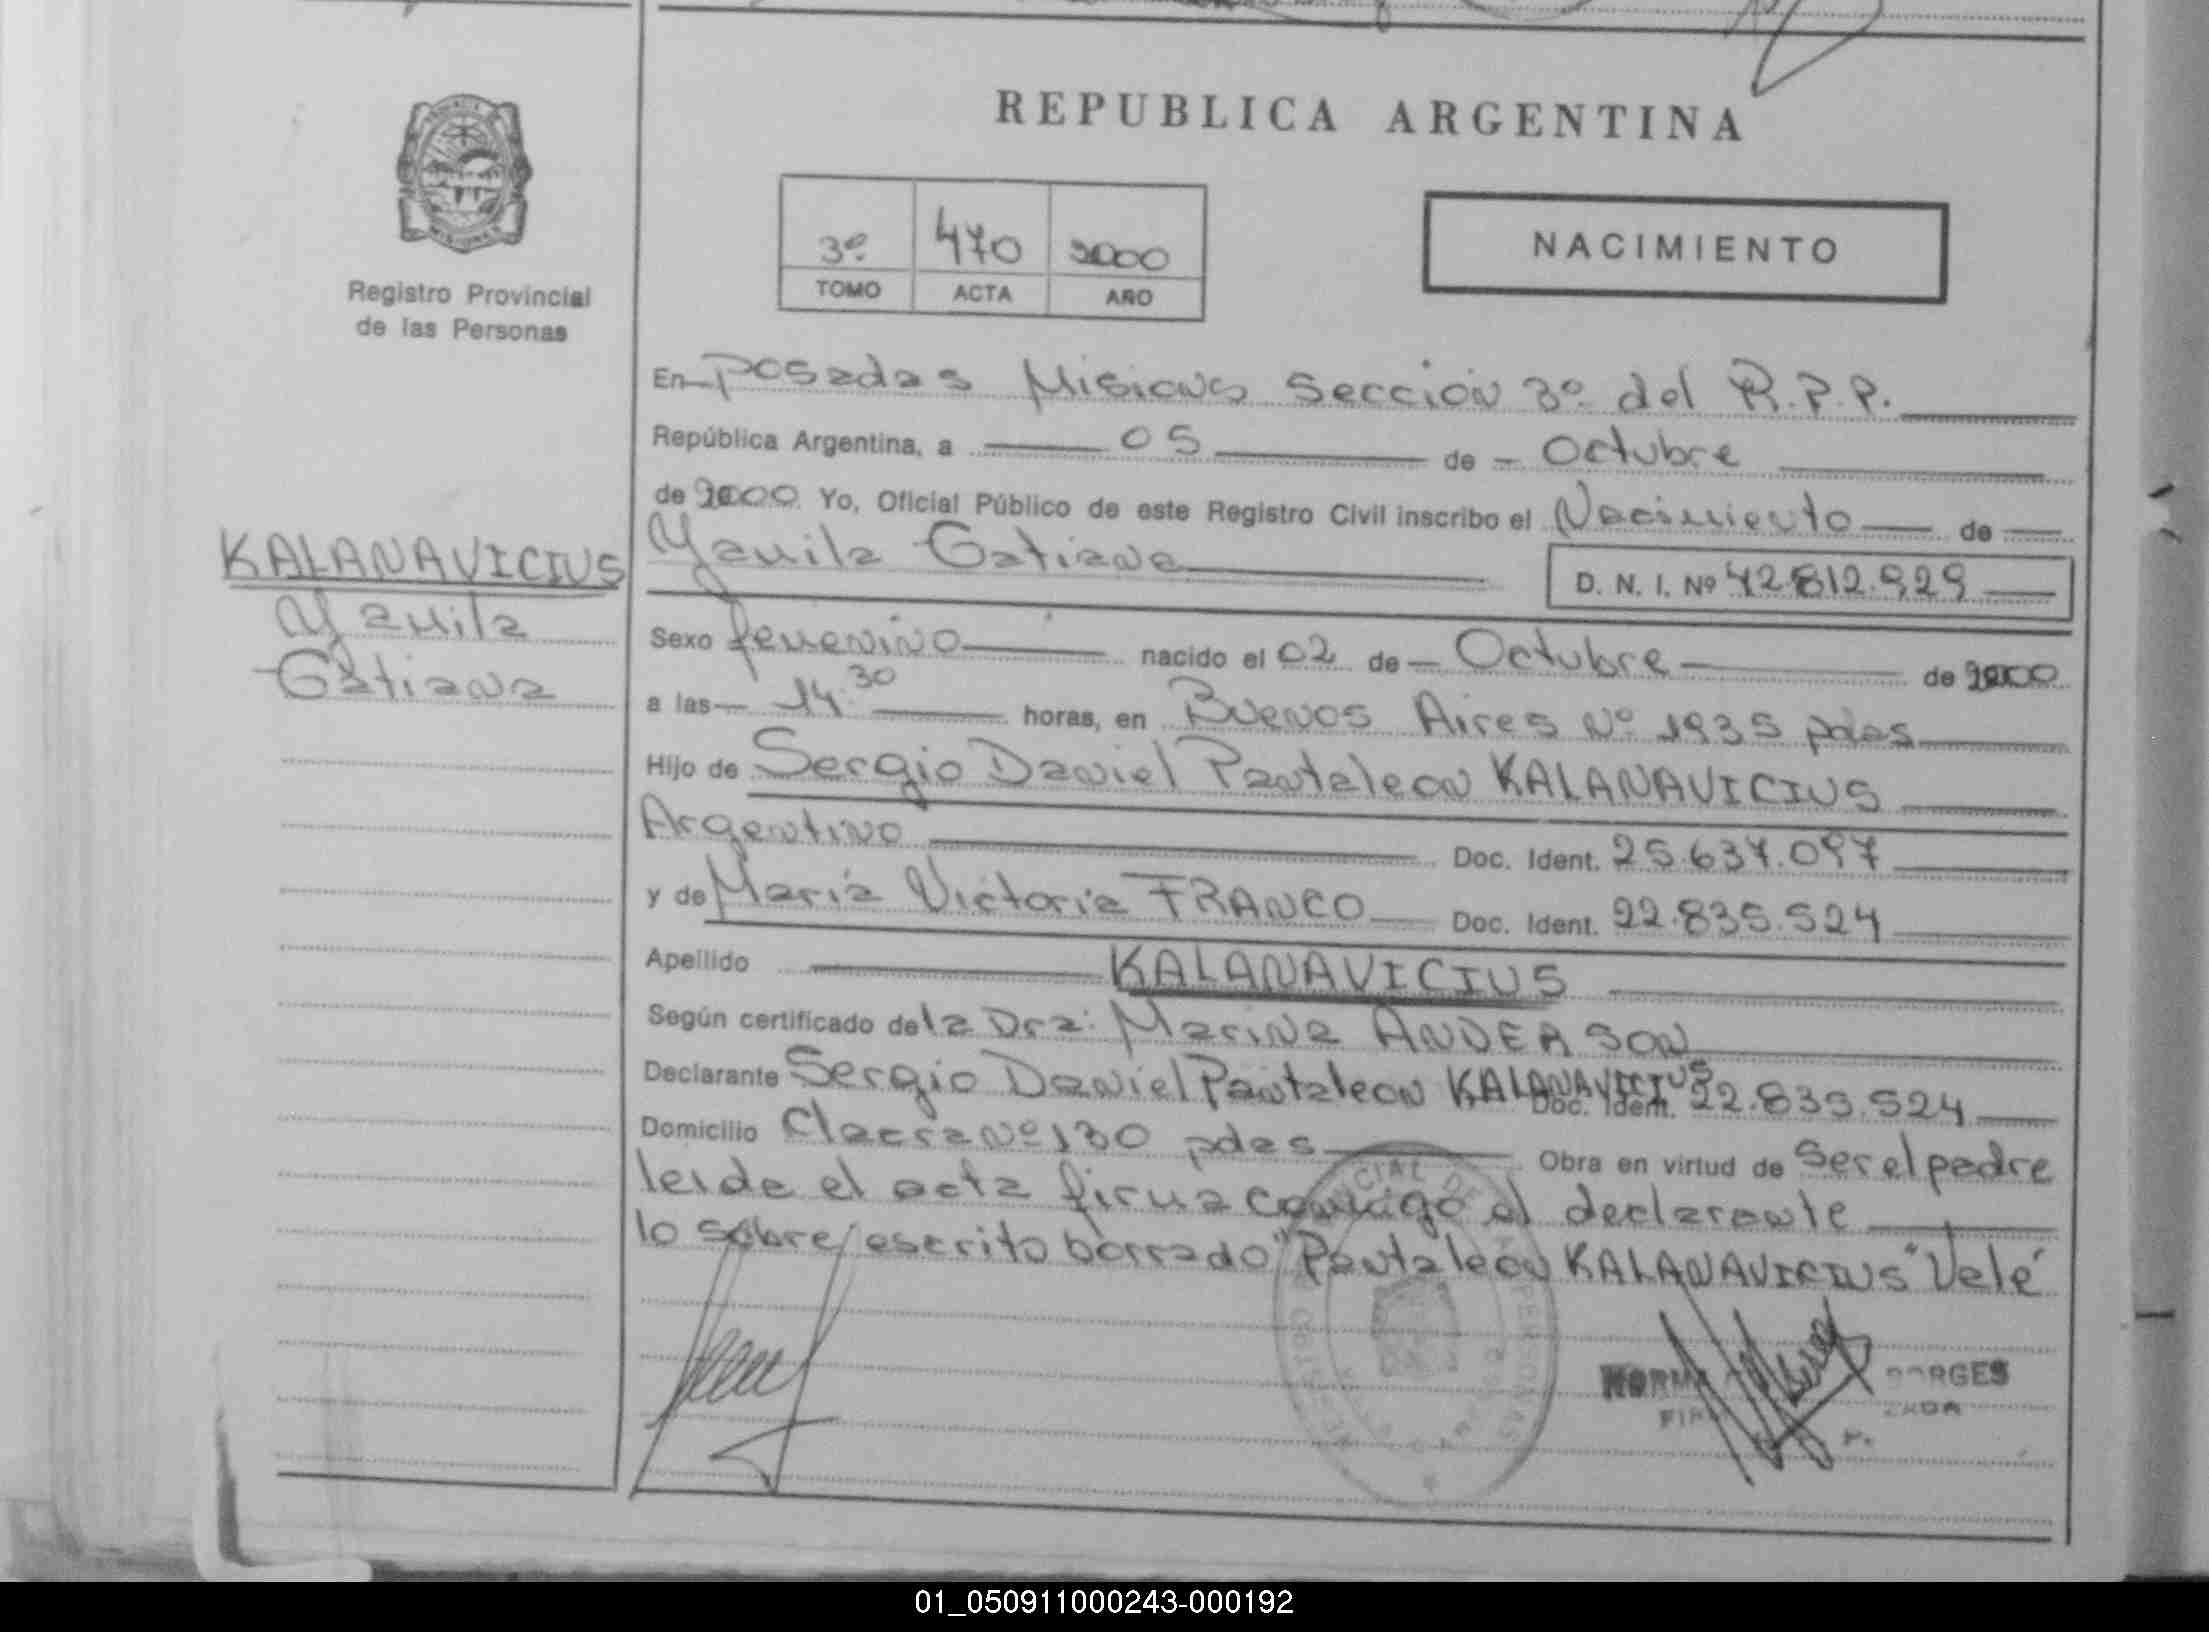 REPUBLICA ARGENTINA
3º 470 2000
TOMO ACTA AÑO
NACIMIENTO
Registro Provincial
de las Personas
KALANAVICIUS
Yamila
Tatiana
En Posadas Misiones Sección 3º del R.P.P.
República Argentina, a 05 de Octubre
de 2000 Yo, Oficial Público de este Registro Civil inscribo el Nacimiento de
Yamila Tatiana
D. N. I. Nº 42.812.929
Sexo femenino nacido el 02 de Octubre de 2000
a las 14.30 horas, en Buenos Aires Nº 1935 pdas
Hijo de Sergio Daniel Pantaleon KALANAVICIUS
Argentino Doc. Ident. 25.637.097
y de María Victoria FRANCO Doc. Ident. 22.835.524
Apellido KALANAVICIUS
Según certificado de la Dra. Marina ANDERSON
Declarante Sergio Daniel Pantaleon KALANAVICIUS Doc. Ident. 22.835.524
Domicilio Nº 130 pdas Obra en virtud de Ser el padre
leida el acta firma conmigo el declarante
lo sobre/escrito borrado "Pantaleon KALANAVICIUS" Vale
NORMA BORGES
01_050911000243-000192